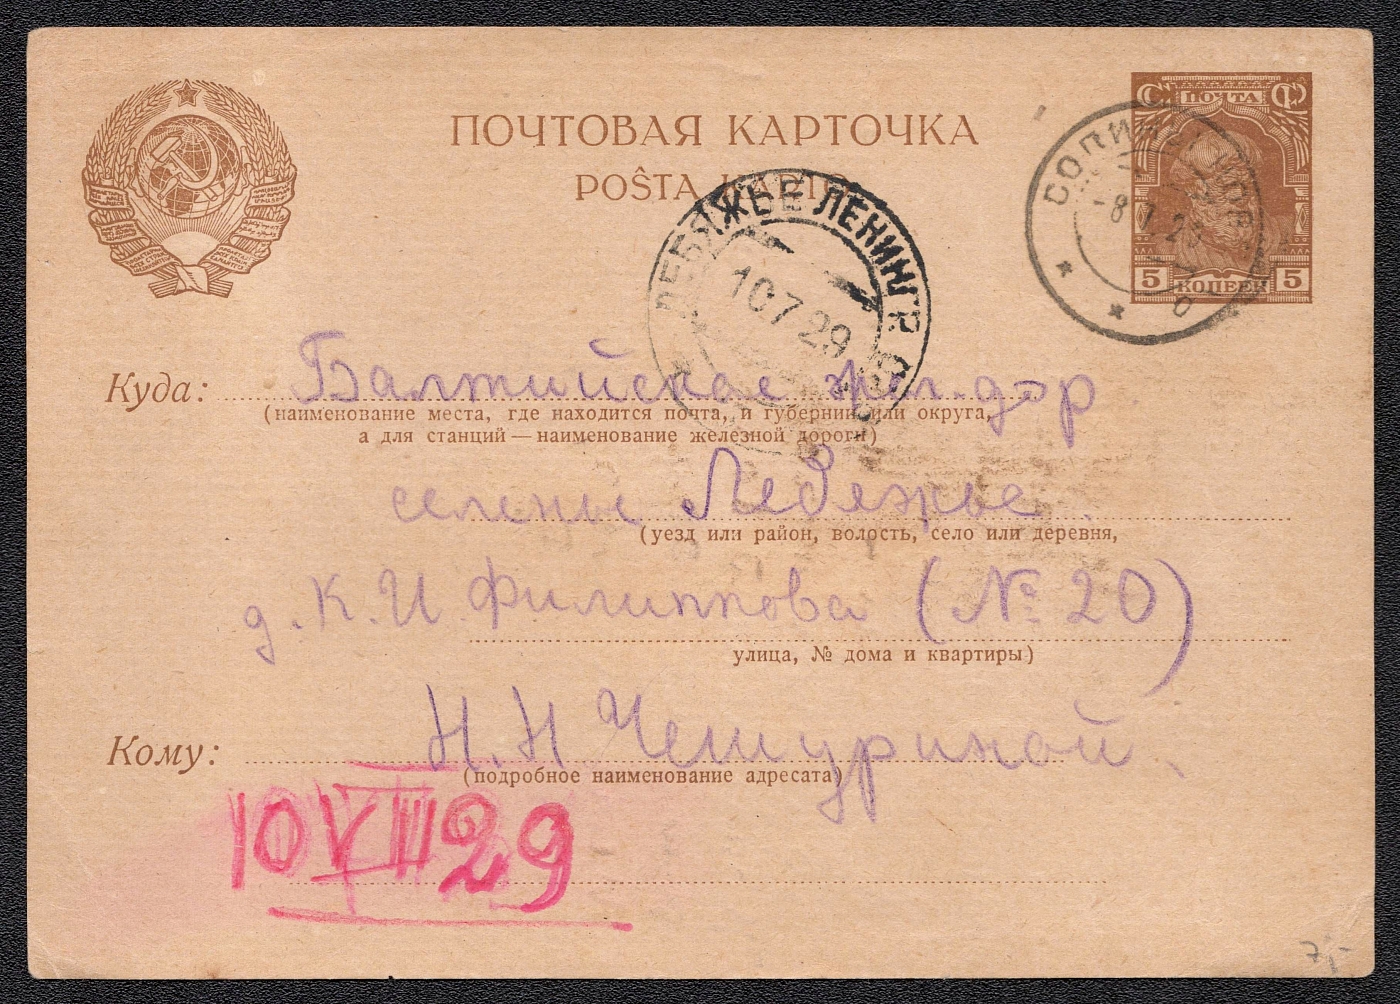 ПОЧТОВАЯ КАРТОЧКА
POŜTA KARTO
ПОЧТА
5 КОПЕЕК 5
-8 7 2
ЛЕБЯЖЬЕ ЛЕНИНГР.
10 7 29
Куда: Балтийская жел. дор
(наименование места, где находится почта, и губернии или округа,
а для станций — наименование железной дороги)
селенье Лебяжье.
(уезд или район, волость, село или деревня,
д. К. И Филиппова (№ 20)
улица, № дома и квартиры)
Кому: Н. Н Чешуриной.
(подробное наименование адресата)
10 VII 29